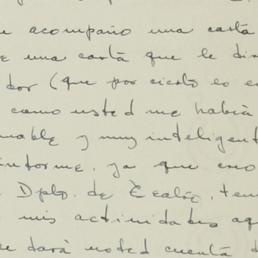 acompaño una carta
e una carta que le di
dor (que por cierto es e
como usted me había
mable y muy inteligent
informe, ya que cre
Dpto. de Teatro, ten
mis actividades aq
e dará usted cuenta d